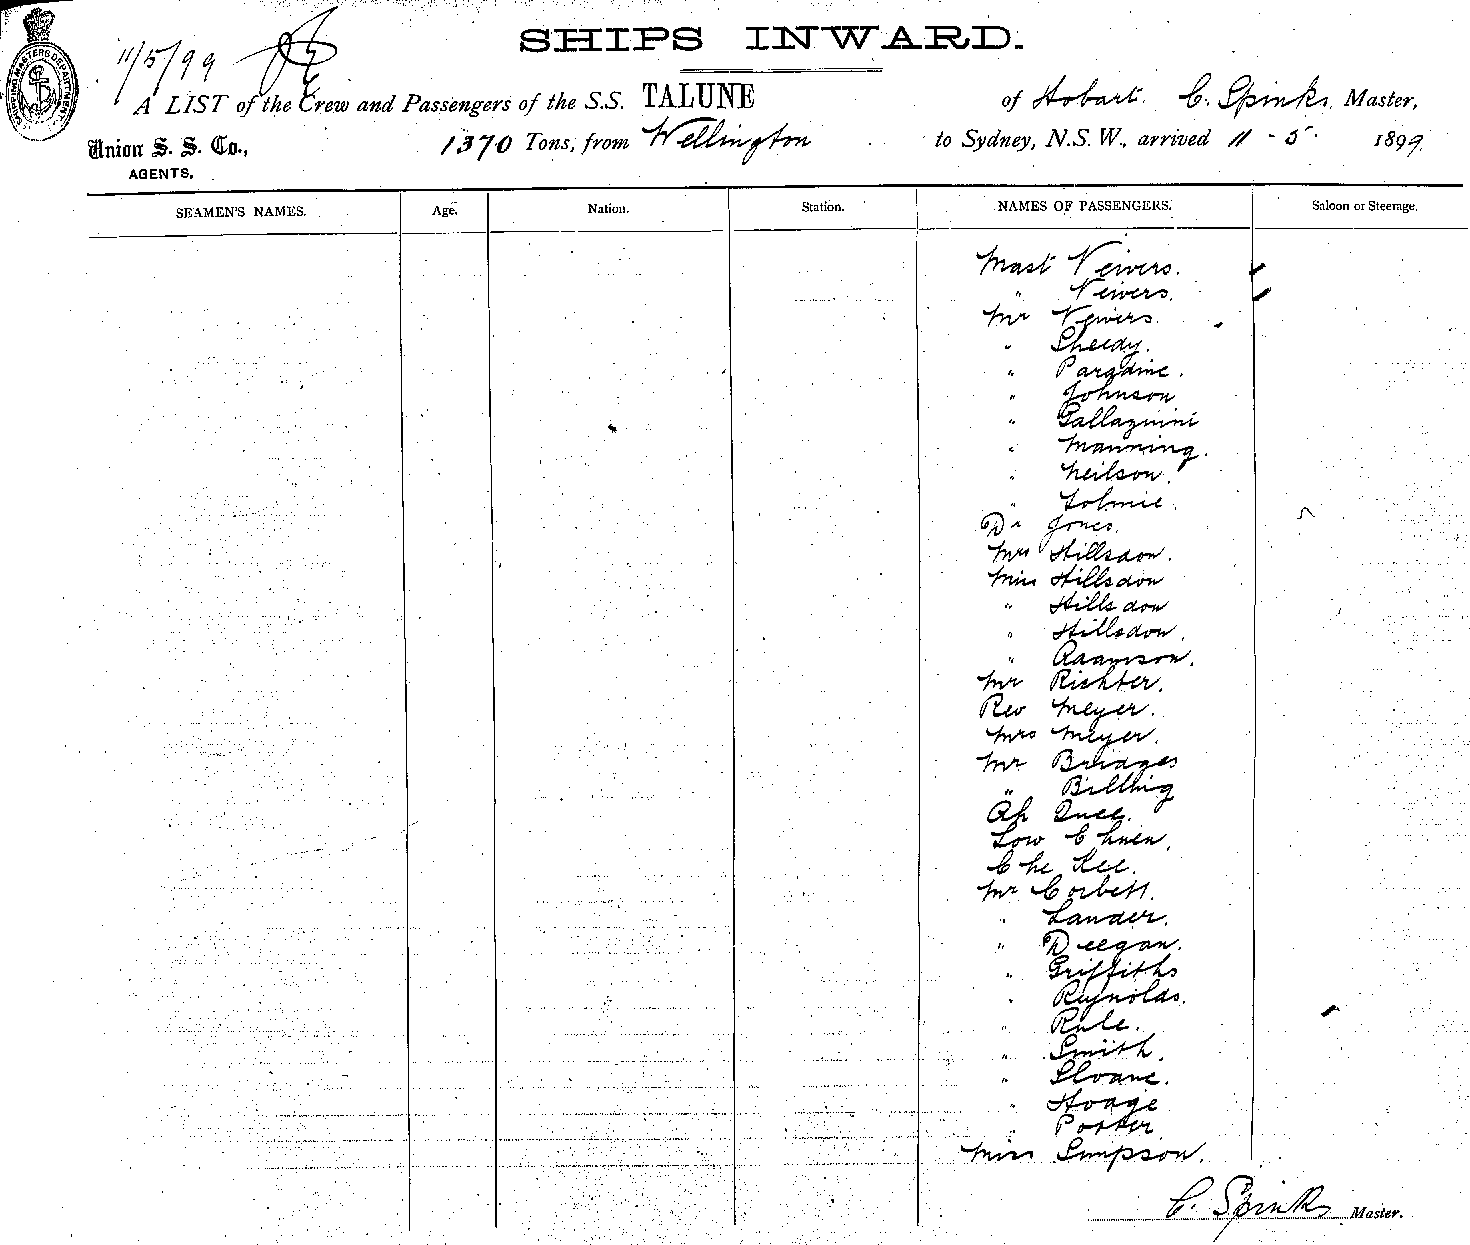 11/5/99
SHIPS INWARD.
A LIST of the Crew and Passengers of the S.S. TALUNE of Hobart. C. Spinks, Master,
Union S. S. Co., 1370 Tons, from Wellington to Sydney, N.S.W., arrived 11 - 5. 1899
AGENTS.
SEAMEN'S NAMES. Age. Nation. Station. NAMES OF PASSENGERS. Saloon or Steerage.
Mast Veivers.
" Veivers.
Mr Veivers.
" Sheedy.
" Paradine.
" Johnson
" Gallagnini
" Manning.
" Neilson.
" Tolmie.
Dr Jones.
Mrs Hillsdon.
Miss Hillsdon
" Hillsdon
" Hillsdon.
" Adamson.
Mr Richter.
Rev Meyer.
Mrs Meyer.
Mr Bridges
" Billing
Ah Quee.
Low Chuen.
Che Kee.
Mr Corbett.
" Lander.
" Deegan.
" Griffiths
" Reynolds.
" Rule.
" Smith.
" Sloane.
" Hoage
" Porter
Miss Simpson.
C. Spinks Master.